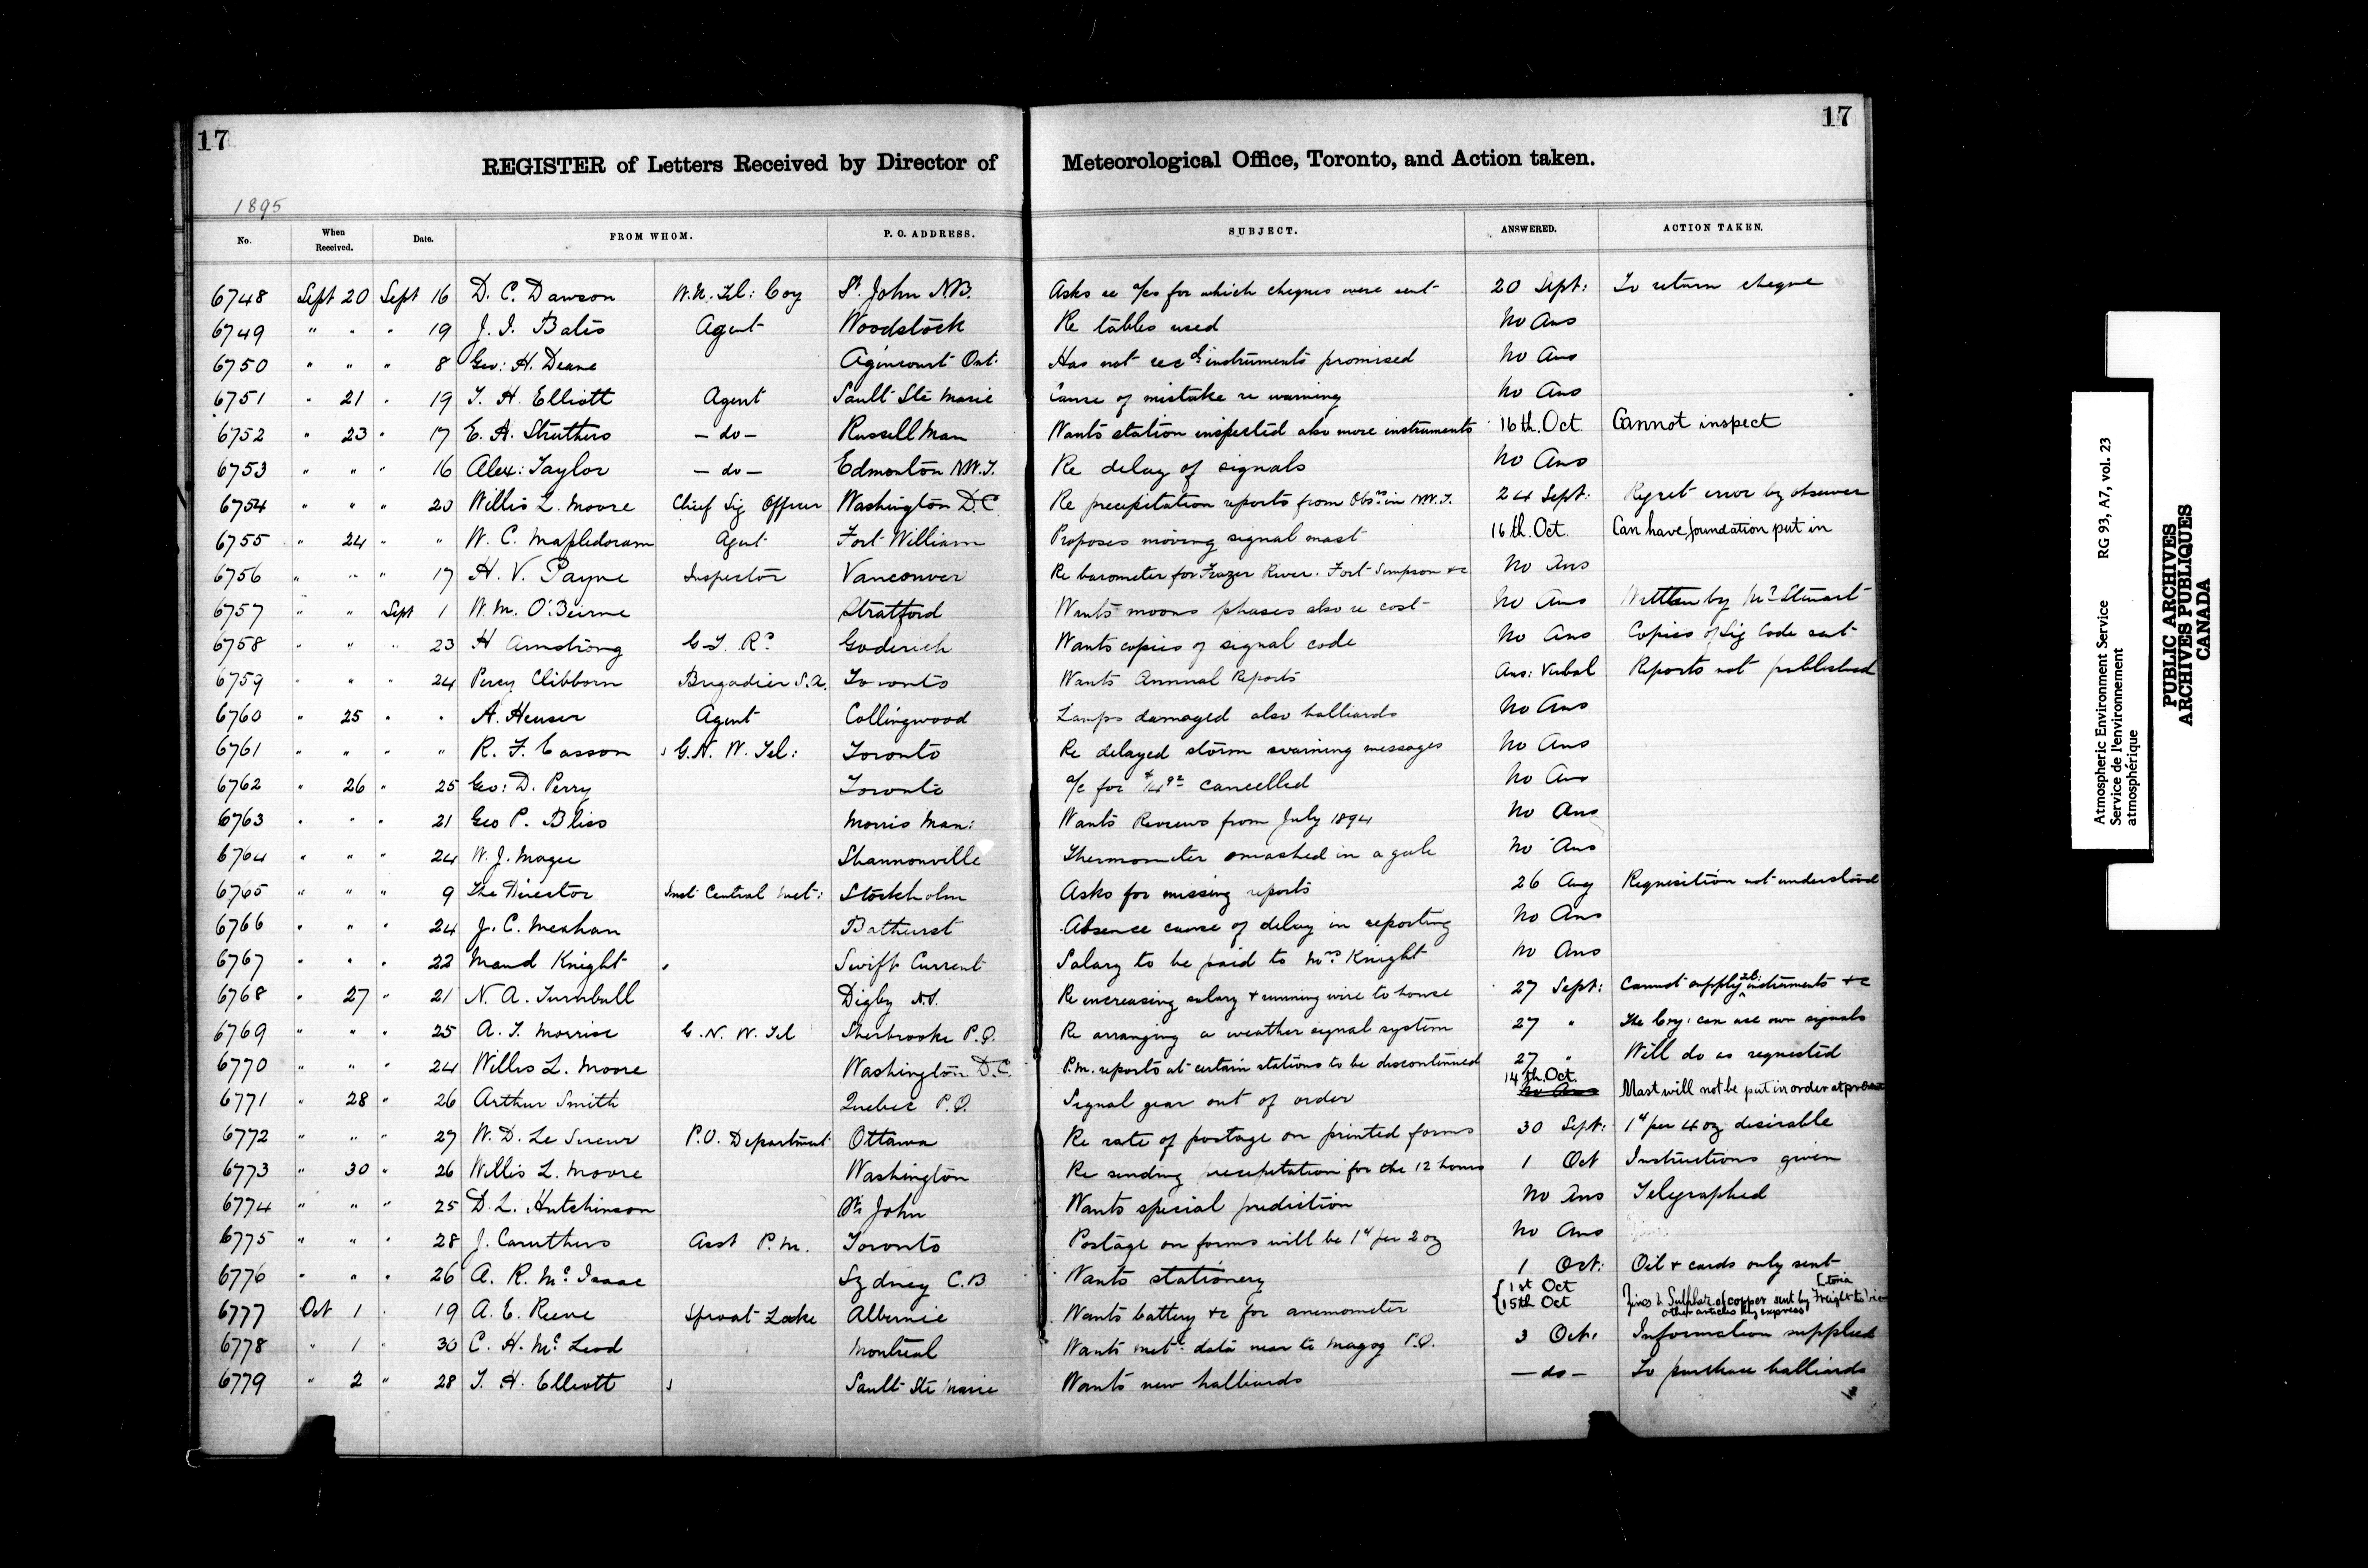 17
17
REGISTER of Letters Received by Director of Meteorological Office, Toronto, and Action taken.
1895
No. When Received. Date. FROM WHOM. P. O. ADDRESS. SUBJECT. ANSWERED. ACTION TAKEN.
6748 Sept 20 Sept 16 D. C. Dawson W.U. Tel: Coy St. John N.B. Asks re a/cs for which cheques were sent 20 Sept: To return cheque
6749 " " " 19 J. I. Bates Agent Woodstock Re tables used No Ans
6750 " " " 8 Geo: H. Deane Agincourt Ont. Has not recd instruments promised No Ans
6751 " 21 " 19 T. H. Elliott Agent Sault Ste Marie Cause of mistake re warning No Ans
6752 " 23 " 17 E. A. Struthers — do — Russell Man Wants station inspected also more instruments 16th. Oct. Cannot inspect
6753 " " " 16 Alex: Taylor — do — Edmonton N.W.T. Re delay of signals No Ans
6754 " " " 20 Willis L. Moore Chief Sig Officer Washington D.C. Re precipitation reports from Obsns in N.W.T. 24 Sept: Regret error by observer
6755 " 24 " " W. C. Mapledoram Agent Fort William Proposes moving signal mast 16th. Oct. Can have foundation put in
6756 " " " 17 H. V. Payne Inspector Vancouver Re barometer for Frazer River. Fort Simpson &c No Ans
6757 " " Sept 1 W. M. O'Beirne Stratford Wants moons phases also re cost No Ans Written by Mr Stewart
6758 " " " 23 H Armstrong G. T. Ry Goderich Wants copies of signal code No Ans Copies of Sig Code sent
6759 " " " 24 Percy Clibborn Brigadier S.A. Toronto Wants Annual Reports Ans: Verbal Reports not published
6760 " 25 " " A. Heuser Agent Collingwood Lamps damaged also halliards No Ans
6761 " " " " R. F. Easson G. N. W. Tel: Toronto Re delayed storm warning messages No Ans
6762 " 26 " 25 Geo: D. Perry Toronto a/c for cancelled No Ans
6763 " " " 21 Geo P. Bliss Morris Man: Wants Reviews from July 1894 No Ans
6764 " " " 24 W. J. Magee Shannonville Thermometer smashed in a gale No Ans
6765 " " " 9 The Director Inst Central Met: Stockholm Asks for missing reports 26 Aug Requisition not understood
6766 " " " 24 J. C. Meahan Bathurst Absence cause of delay in reporting No Ans
6767 " " " 22 Maud Knight Swift Current Salary to be paid to Mrs. Knight No Ans
6768 " 27 " 21 N. A. Turnbull Digby N.S. Re increasing salary & running wire to house 27 Sept: Cannot supply tel: instruments &c
6769 " " " 25 A. T. Morrise G. N. W. Tel Sherbrooke P.Q. Re arranging a weather signal system 27 " The Coy: can use own signals
6770 " " " 24 Willis L. Moore Washington D.C. P.m. reports at certain stations to be discontinued 27 " Will do as requested
6771 " 28 " 26 Arthur Smith Quebec P.Q. Signal gear out of order 14th. Oct. No Ans Mast will not be put in order at present
6772 " " " 27 W. D. Le Sueur P.O. Department Ottawa Re rate of postage on printed forms 30 Sept: 1ct per 4 oz desirable
6773 " 30 " 26 Willis L. Moore Washington Re sending precipitation for the 12 hours 1 Oct Instructions given
6774 " " " 25 D. L. Hutchinson St. John Wants special prediction No Ans Telegraphed
6775 " " " 28 J. Caruthers Asst P.M. Toronto Postage on forms will be 1ct per 2 oz No Ans
6776 " " " 26 A. R. Mc. Isaac Sydney C.B Wants stationery 1 Oct: Oil & cards only sent
6777 Oct 1 " 19 A. E. Reeve Sproat Lake Albernie Wants battery &c for anemometer 1st Oct 15th Oct Zincs & Sulphate of copper sent by Freight to Victoria other articles by express
6778 " 1 " 30 C. H. Mc. Leod Montreal Wants metl. data near to Magog P.Q. 3 Oct: Information supplied
6779 " 2 " 28 T. H. Elliott Sault Ste Marie Wants new halliards — do — To purchase halliards
Atmospheric Environment Service RG 93, A7, vol. 23
Service de l'environnement
atmosphérique
PUBLIC ARCHIVES
ARCHIVES PUBLIQUES
CANADA